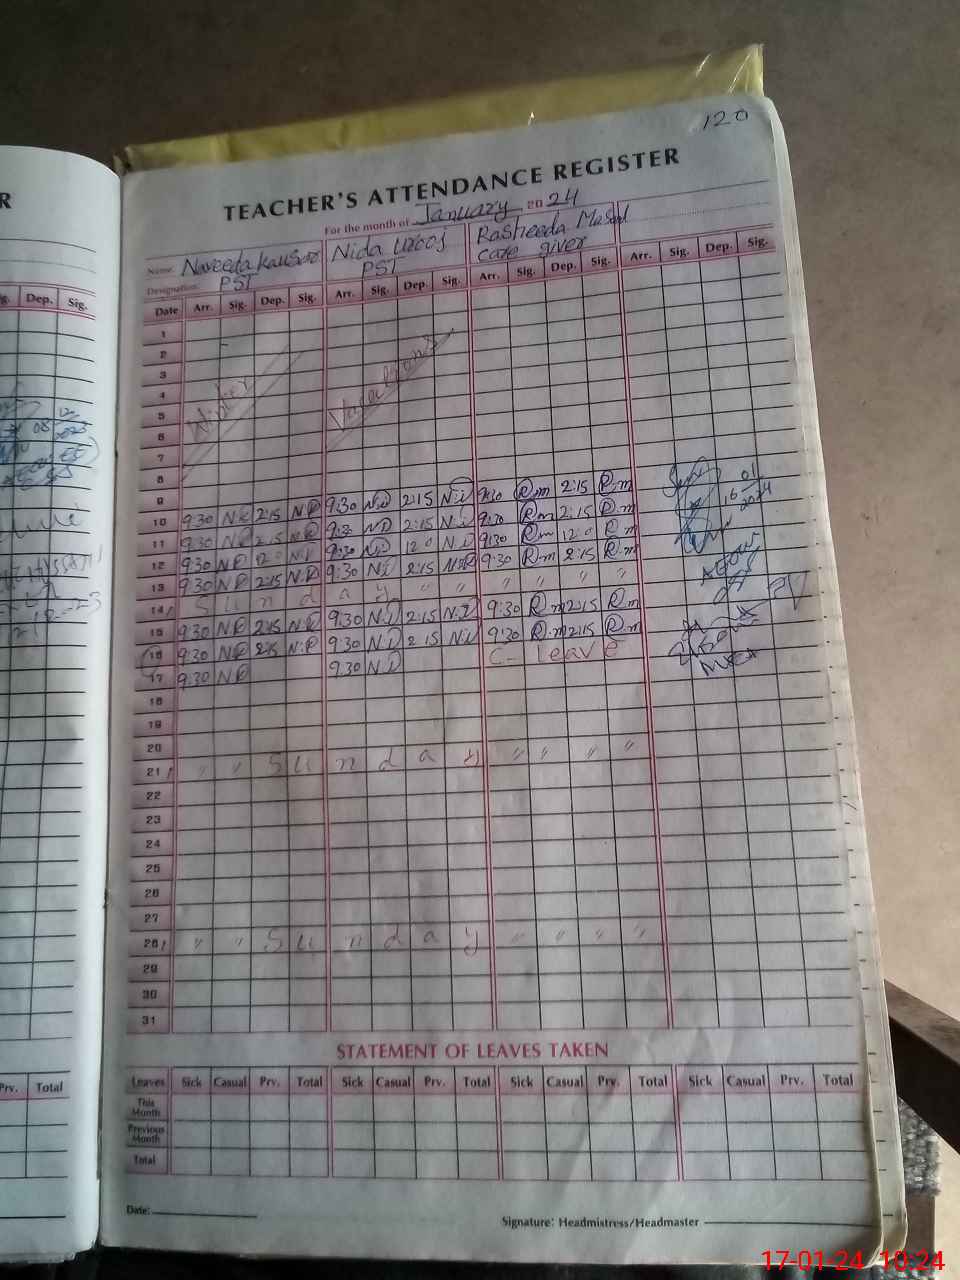 120
TEACHER'S ATTENDANCE REGISTER
For the month of January 2024
Name Naveeda kausar Nida urooj Rasheeda Masood
Designation PST PST care giver
Date Arr. Sig. Dep. Sig. Arr. Sig. Dep. Sig. Arr. Sig. Dep. Sig. Arr. Sig. Dep. Sig.
Dep. Sig.
1
2
3
4
5
6
7
Winter Vacations
8
9 9:30 N.U 2:15 N.U 9:30 R.m 2:15 R.m
10 9:30 N.K 2:15 N.K 9:30 N.U 2:15 N.U 9:30 R.m 2:15 R.m
11 9:30 N.K 2:15 N.K 9:30 N.U 12:0 N.U 9:30 R.m 12:0 R.m
12 9:30 N.K 12:0 N.K 9:30 N.U 2:15 N.U 9:30 R.m 2:15 R.m
13 9:30 N.K 2:15 N.K
14 Sunday " " " " " "
15 9:30 N.K 2:15 N.K 9:30 N.U 2:15 N.U 9:30 R.m 2:15 R.m
16 9:30 N.K 2:15 N.K 9:30 N.U 2:15 N.U 9:30 R.m 2:15 R.m
17 9:30 N.K 9:30 N.U C- leave
16 01 2024
18
19
20
21 " " Sunday " " " "
22
23
24
25
26
27
28 " " Sunday " " " "
29
30
31
STATEMENT OF LEAVES TAKEN
Prv. Total
Leaves Sick Casual Prv. Total Sick Casual Prv. Total Sick Casual Prv. Total Sick Casual Prv. Total
This Month
Previous Month
Total
Date:
Signature: Headmistress/Headmaster
17-01-24 10:24